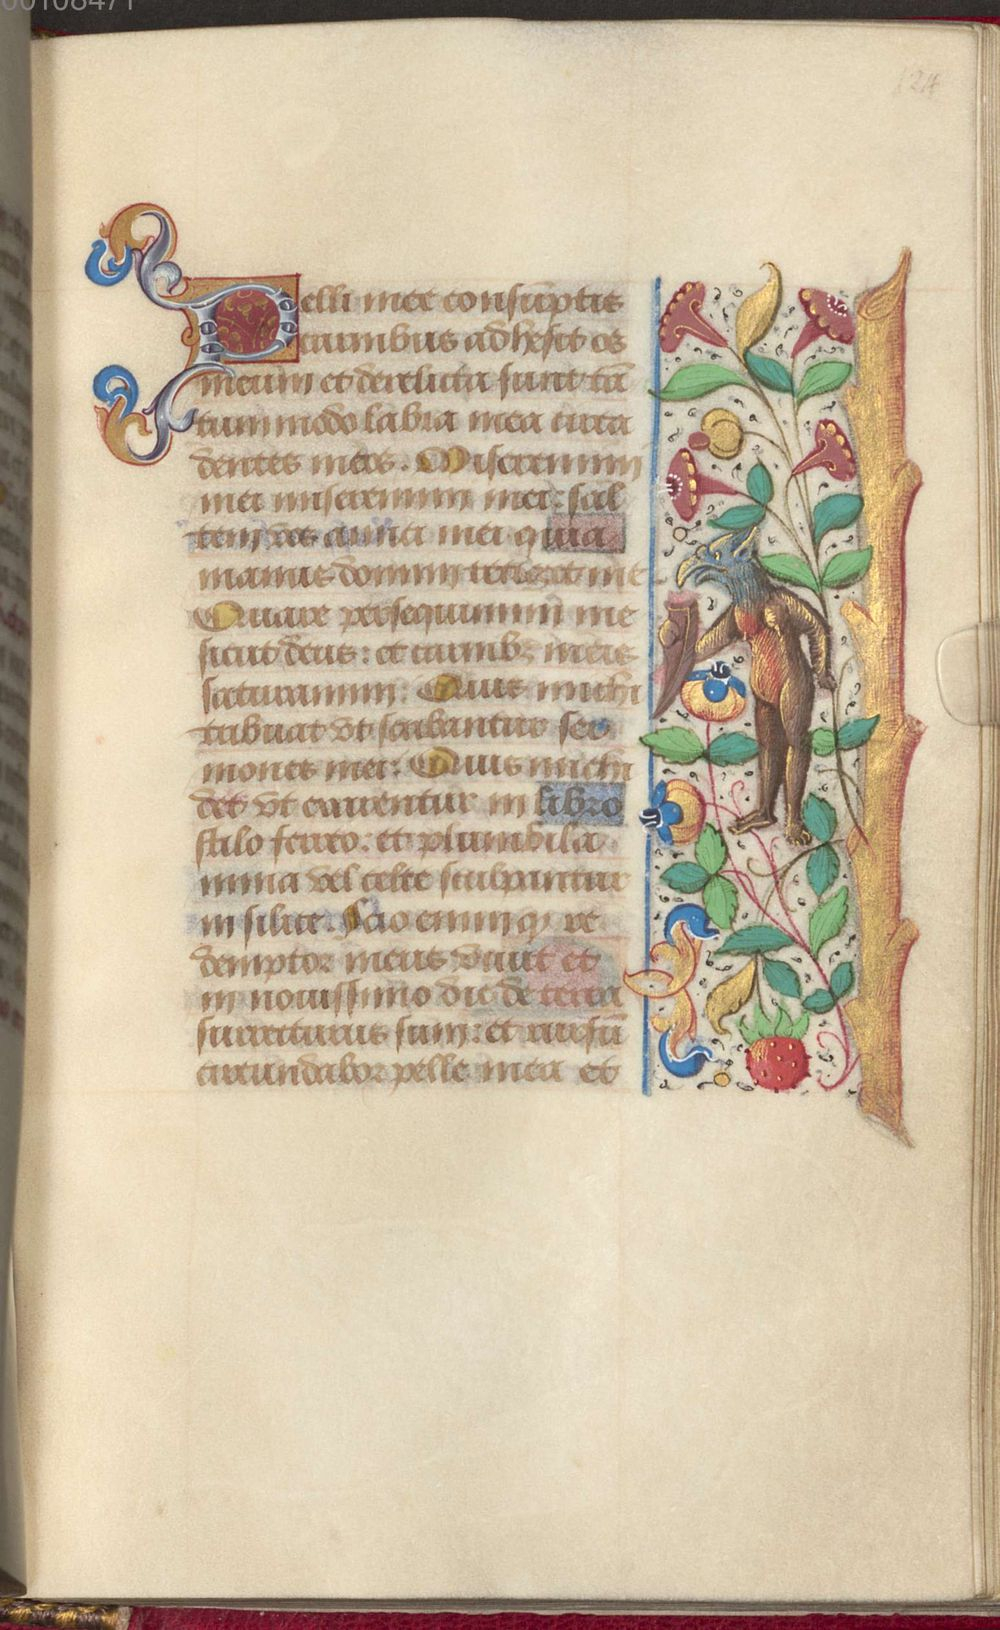 00108471
124
Pelli mee consūptis
carnibus adhesit os
meum et derelicta sunt tā
tummodo labia mea circa
dentes meos. Miseremini
mei miseremini mei: sal
tem vos amici mei quia
manus domini tetigit me
Quare persequimini me
sicut deus: et carnibꝫ meis
saturamini: Quis michi
tribuat vt scribantur ser
mones mei: Quis michi
det vt exarentur in libro
stilo ferreo: et plumbi la
mina vel celte sculpantur
in silice. Scio enim qꝫ re
demptor meus viuit et
in nouissimo die de terra
surrecturus sum: et rursū
circundabor pelle mea et